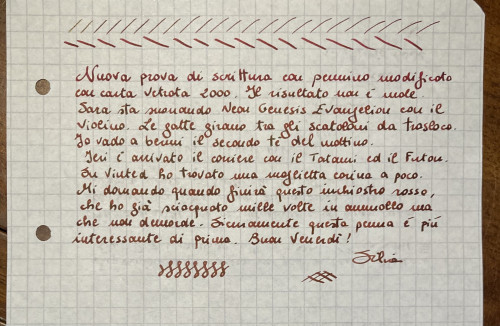 Nuova prova di scrittura con pennino modificato
con carta Vetrota 2000. Il risultato non è male.
Sara sta suonando Neon Genesis Evangelion con il
violino. Le gatte girano tra gli scatoloni da trasloco.
Io vado a bermi il secondo tè del mattino.
Ieri è arrivato il corriere con il Tatami ed il Futon.
Su Vinted ho trovato una maglietta carina a poco.
Mi domando quando finirà questo inchiostro rosso,
che ho già sciacquato mille volte in ammollo ma
che non demorde. Sicuramente questa penna è più
interessante di prima. Buon Venerdì!
Silvia